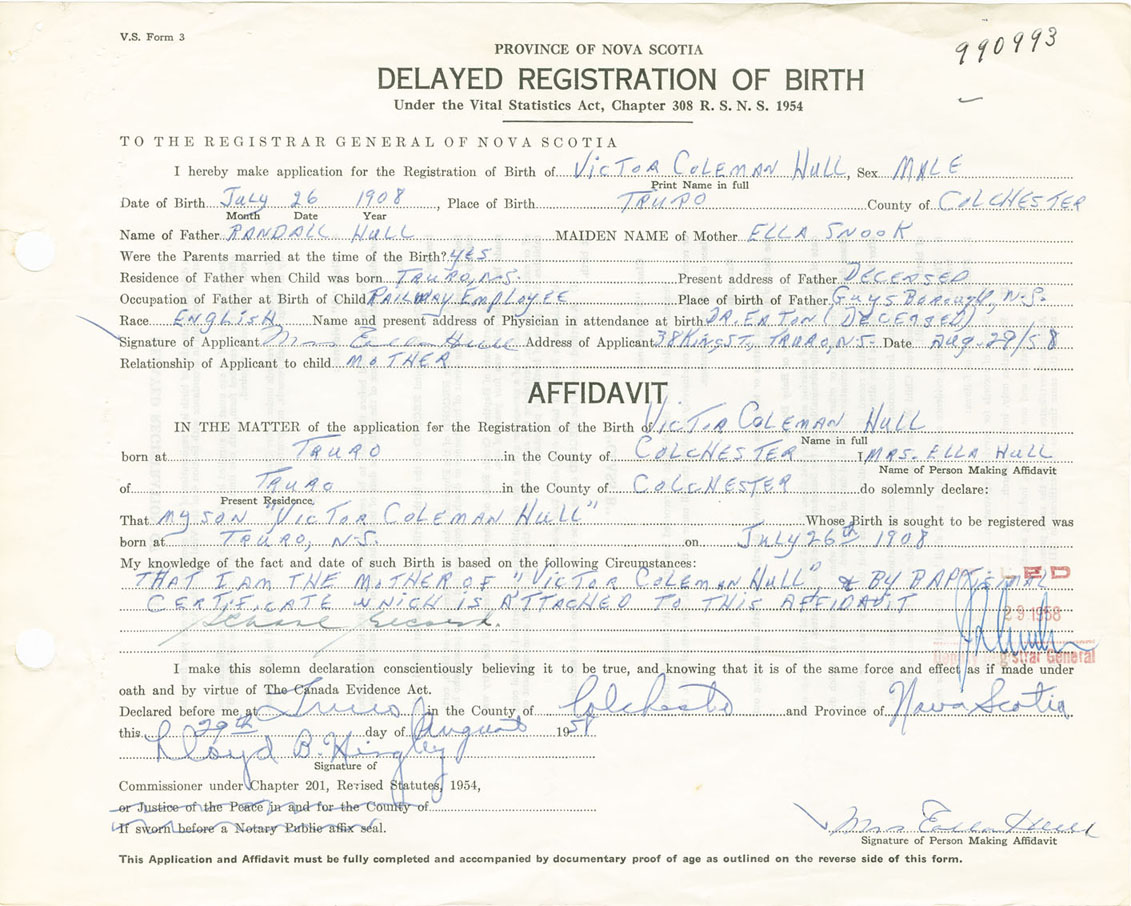 V.S. Form 3
990993
PROVINCE OF NOVA SCOTIA
DELAYED REGISTRATION OF BIRTH
Under the Vital Statistics Act, Chapter 308 R. S. N. S. 1954
TO THE REGISTRAR GENERAL OF NOVA SCOTIA
I hereby make application for the Registration of Birth of VICTOR COLEMAN HULL, Sex MALE
Print Name in full
Date of Birth July 26 1908, Place of Birth TRURO County of COLCHESTER
Month Date Year
Name of Father RANDALL HULL MAIDEN NAME of Mother ELLA SNOOK
Were the Parents married at the time of the Birth? YES
Residence of Father when Child was born TRURO, N.S. Present address of Father DECEASED
Occupation of Father at Birth of Child RAILWAY EMPLOYEE Place of birth of Father GUYSBOROUGH, N.S.
Race ENGLISH Name and present address of Physician in attendance at birth DR. EATON (DECEASED)
Signature of Applicant Mrs Ella Hull Address of Applicant 38 KING ST., TRURO, N.S. Date AUG. 29/58
Relationship of Applicant to child MOTHER
AFFIDAVIT
IN THE MATTER of the application for the Registration of the Birth of VICTOR COLEMAN HULL
Name in full
born at TRURO in the County of COLCHESTER I MRS. ELLA HULL
Name of Person Making Affidavit
of TRURO in the County of COLCHESTER do solemnly declare:
Present Residence
That MY SON "VICTOR COLEMAN HULL" Whose Birth is sought to be registered was
born at TRURO, N.S. on July 26th 1908
My knowledge of the fact and date of such Birth is based on the following Circumstances:
THAT I AM THE MOTHER OF "VICTOR COLEMAN HULL" & BY BAPTISMAL
CERTIFICATE WHICH IS ATTACHED TO THIS AFFIDAVIT
School record.
29 1958
Deputy Registrar General
I make this solemn declaration conscientiously believing it to be true, and knowing that it is of the same force and effect as if made under
oath and by virtue of The Canada Evidence Act.
Declared before me at Truro in the County of Colchester and Province of Nova Scotia
this 29th day of August 1958
Lloyd B. Hingley
Signature of
Commissioner under Chapter 201, Revised Statutes, 1954,
or Justice of the Peace in and for the County of
If sworn before a Notary Public affix seal.
Mrs Ella Hull
Signature of Person Making Affidavit
This Application and Affidavit must be fully completed and accompanied by documentary proof of age as outlined on the reverse side of this form.